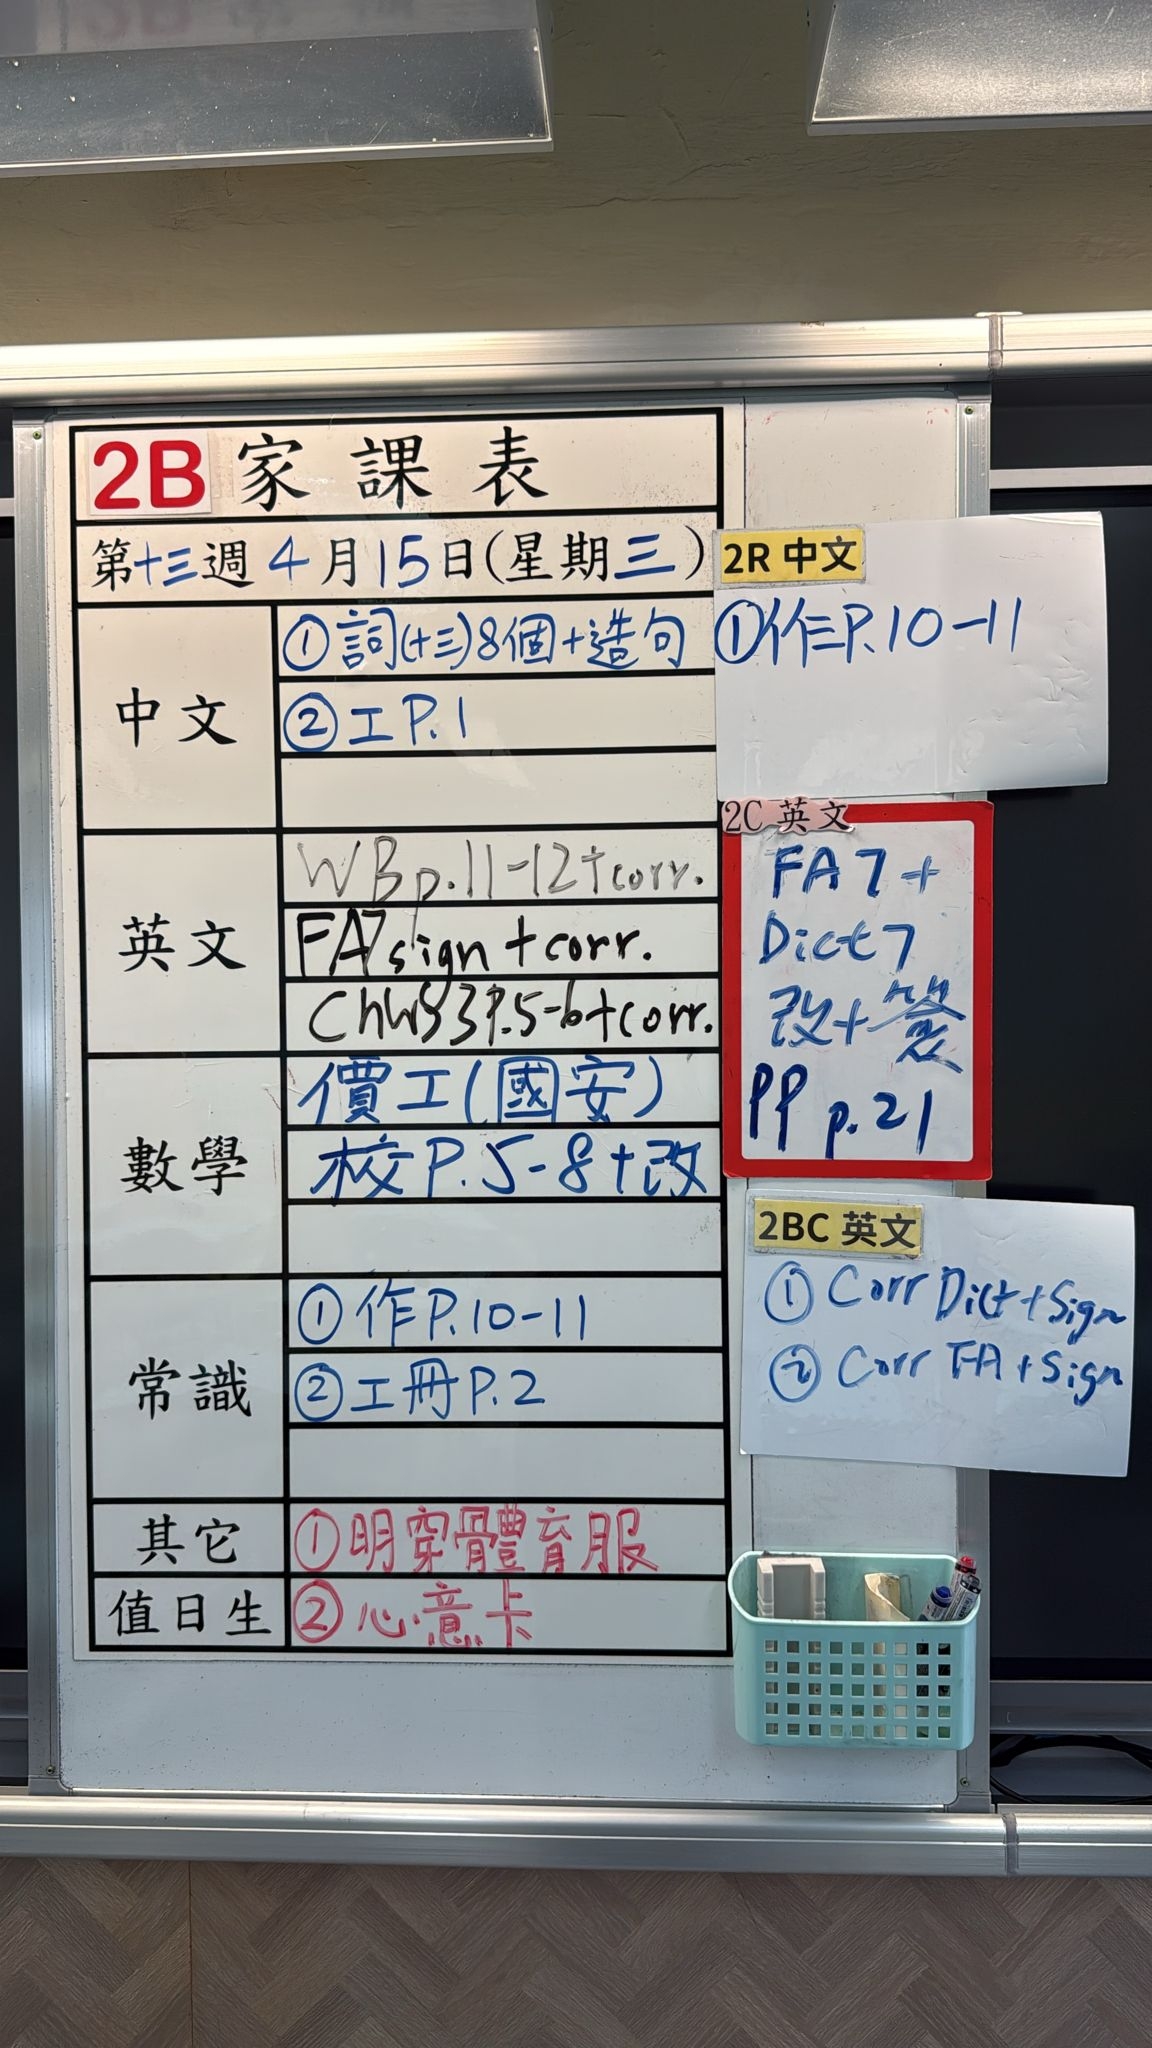 2B 家課表
第十三週 4月15日(星期三)
中文
①詞(十三)8個+造句
②工P.1
英文
WB p.11-12+corr.
FA7 sign + corr.
ChWS3 P.5-6+corr.
數學
價工(國安)
校P.5-8+改
常識
①作P.10-11
②工冊P.2
其它
①明穿體育服
值日生
②心意卡
2R 中文
①作P.10-11
2C 英文
FA7+
Dict7
改+簽
PP p.21
2BC 英文
① Corr Dict+Sign
② Corr FA+Sign